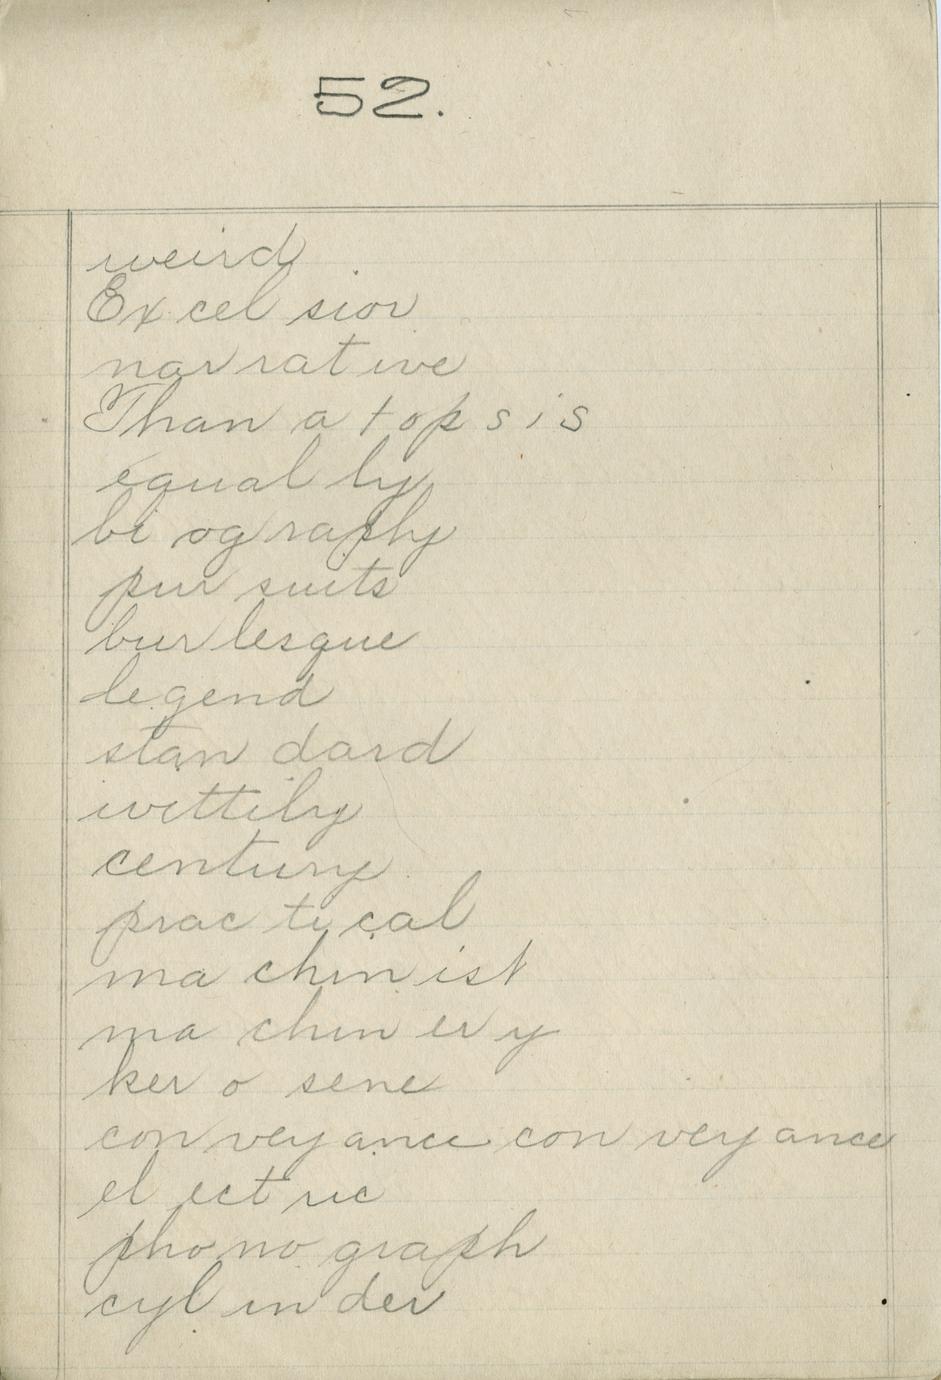 52.
weird
Ex cel sior
nar rat ive
Than a t op s i s
equal ly
bi og raphy
pur suits
bur lesque
legend
stan dard
wittily
century
prac ti cal
ma chin ist
ma chin er y
ker o sene
con vey ance con vey ance
el ect ric
pho no graph
cyl in der